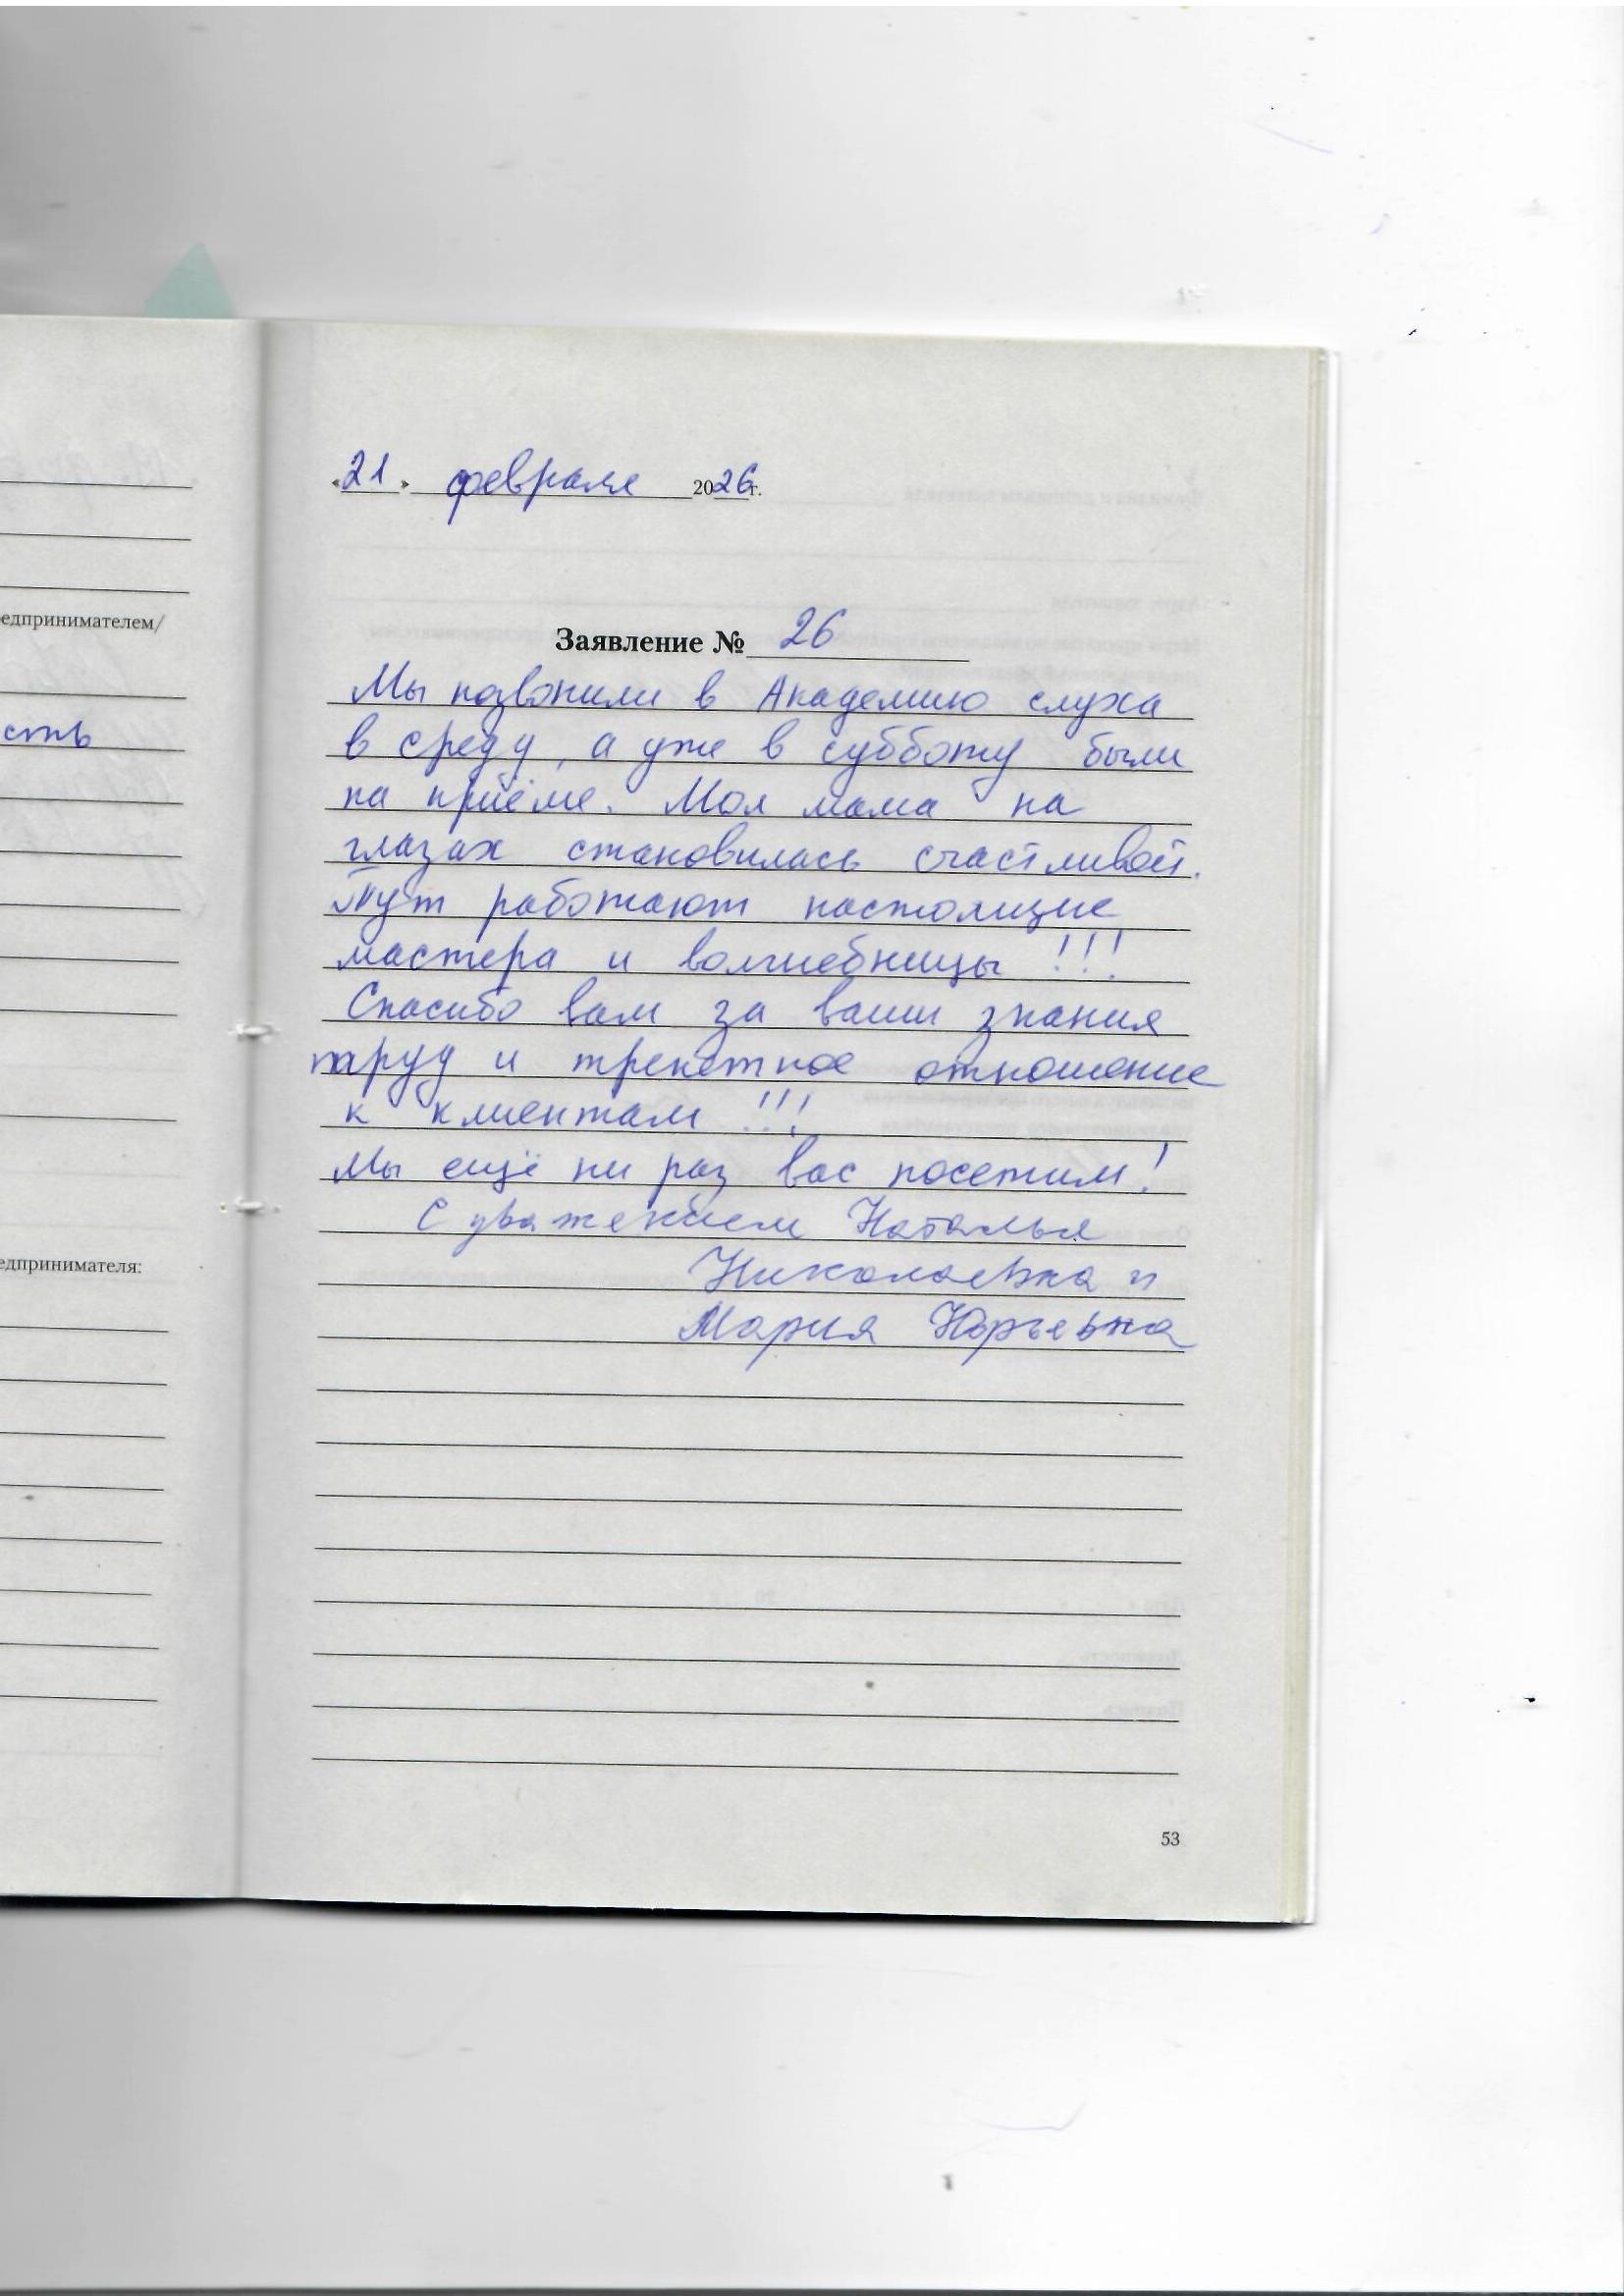 едпринимателем/
сть
едпринимателя:
«21» февраля 2026г.
Заявление № 26
Мы позвонили в Академию слуха
в среду, а уже в субботу были
на приёме. Моя мама на
глазах становилась счастливой.
Тут работают настоящие
мастера и волшебницы !!!
Спасибо вам за ваши знания
труд и трепетное отношение
к клиентам !!!
Мы ещё ни раз вас посетим!
С уважением Наталья
Николаевна и
Мария Юрьевна
53